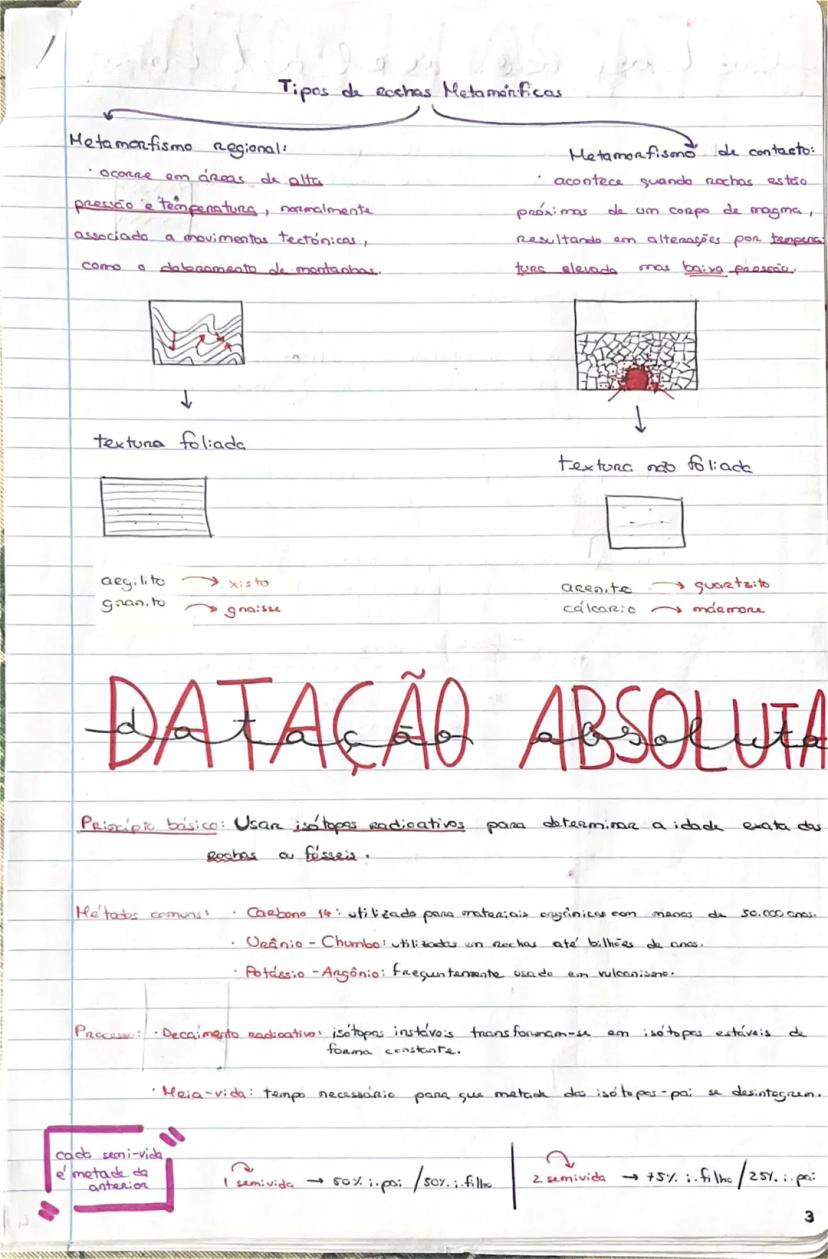 Tipos de rochas Metamórficas
Metamorfismo regional:
· ocorre em áreas de alta
pressão e temperatura, normalmente
associado a movimentos tectónicos,
como o dobramento de montanhas.
textura foliada
argilito → xisto
granito → gnaisse
Metamorfismo de contacto:
· acontece quando rochas estão
próximas de um corpo de magma,
resultando em alterações por tempera
tura elevada mas baixa pressão.
textura não foliada
arenito → quartzito
cálcario → mármore
DATAÇÃO ABSOLUTA
datação absoluta
Princípio básico: Usar isótopos radioativos para determinar a idade exata das
rochas ou fósseis.
Métodos comuns: · Carbono 14: utilizado para materiais orgânicos com menos de 50.000 anos.
· Urânio - Chumbo: utilizados em rochas até bilhões de anos.
· Potássio - Argônio: frequentemente usado em vulcanismo.
Processo: · Decaimento radioativo: isótopos instáveis transformam-se em isótopos estáveis de
forma constante.
· Meia-vida: tempo necessário para que metade dos isótopos-pai se desintegrem.
cada semi-vida
é metade da
anterior
1 semivida → 50% i. pai / 50% i. filho
2 semivida → 75% i. filho / 25% i. pai
3